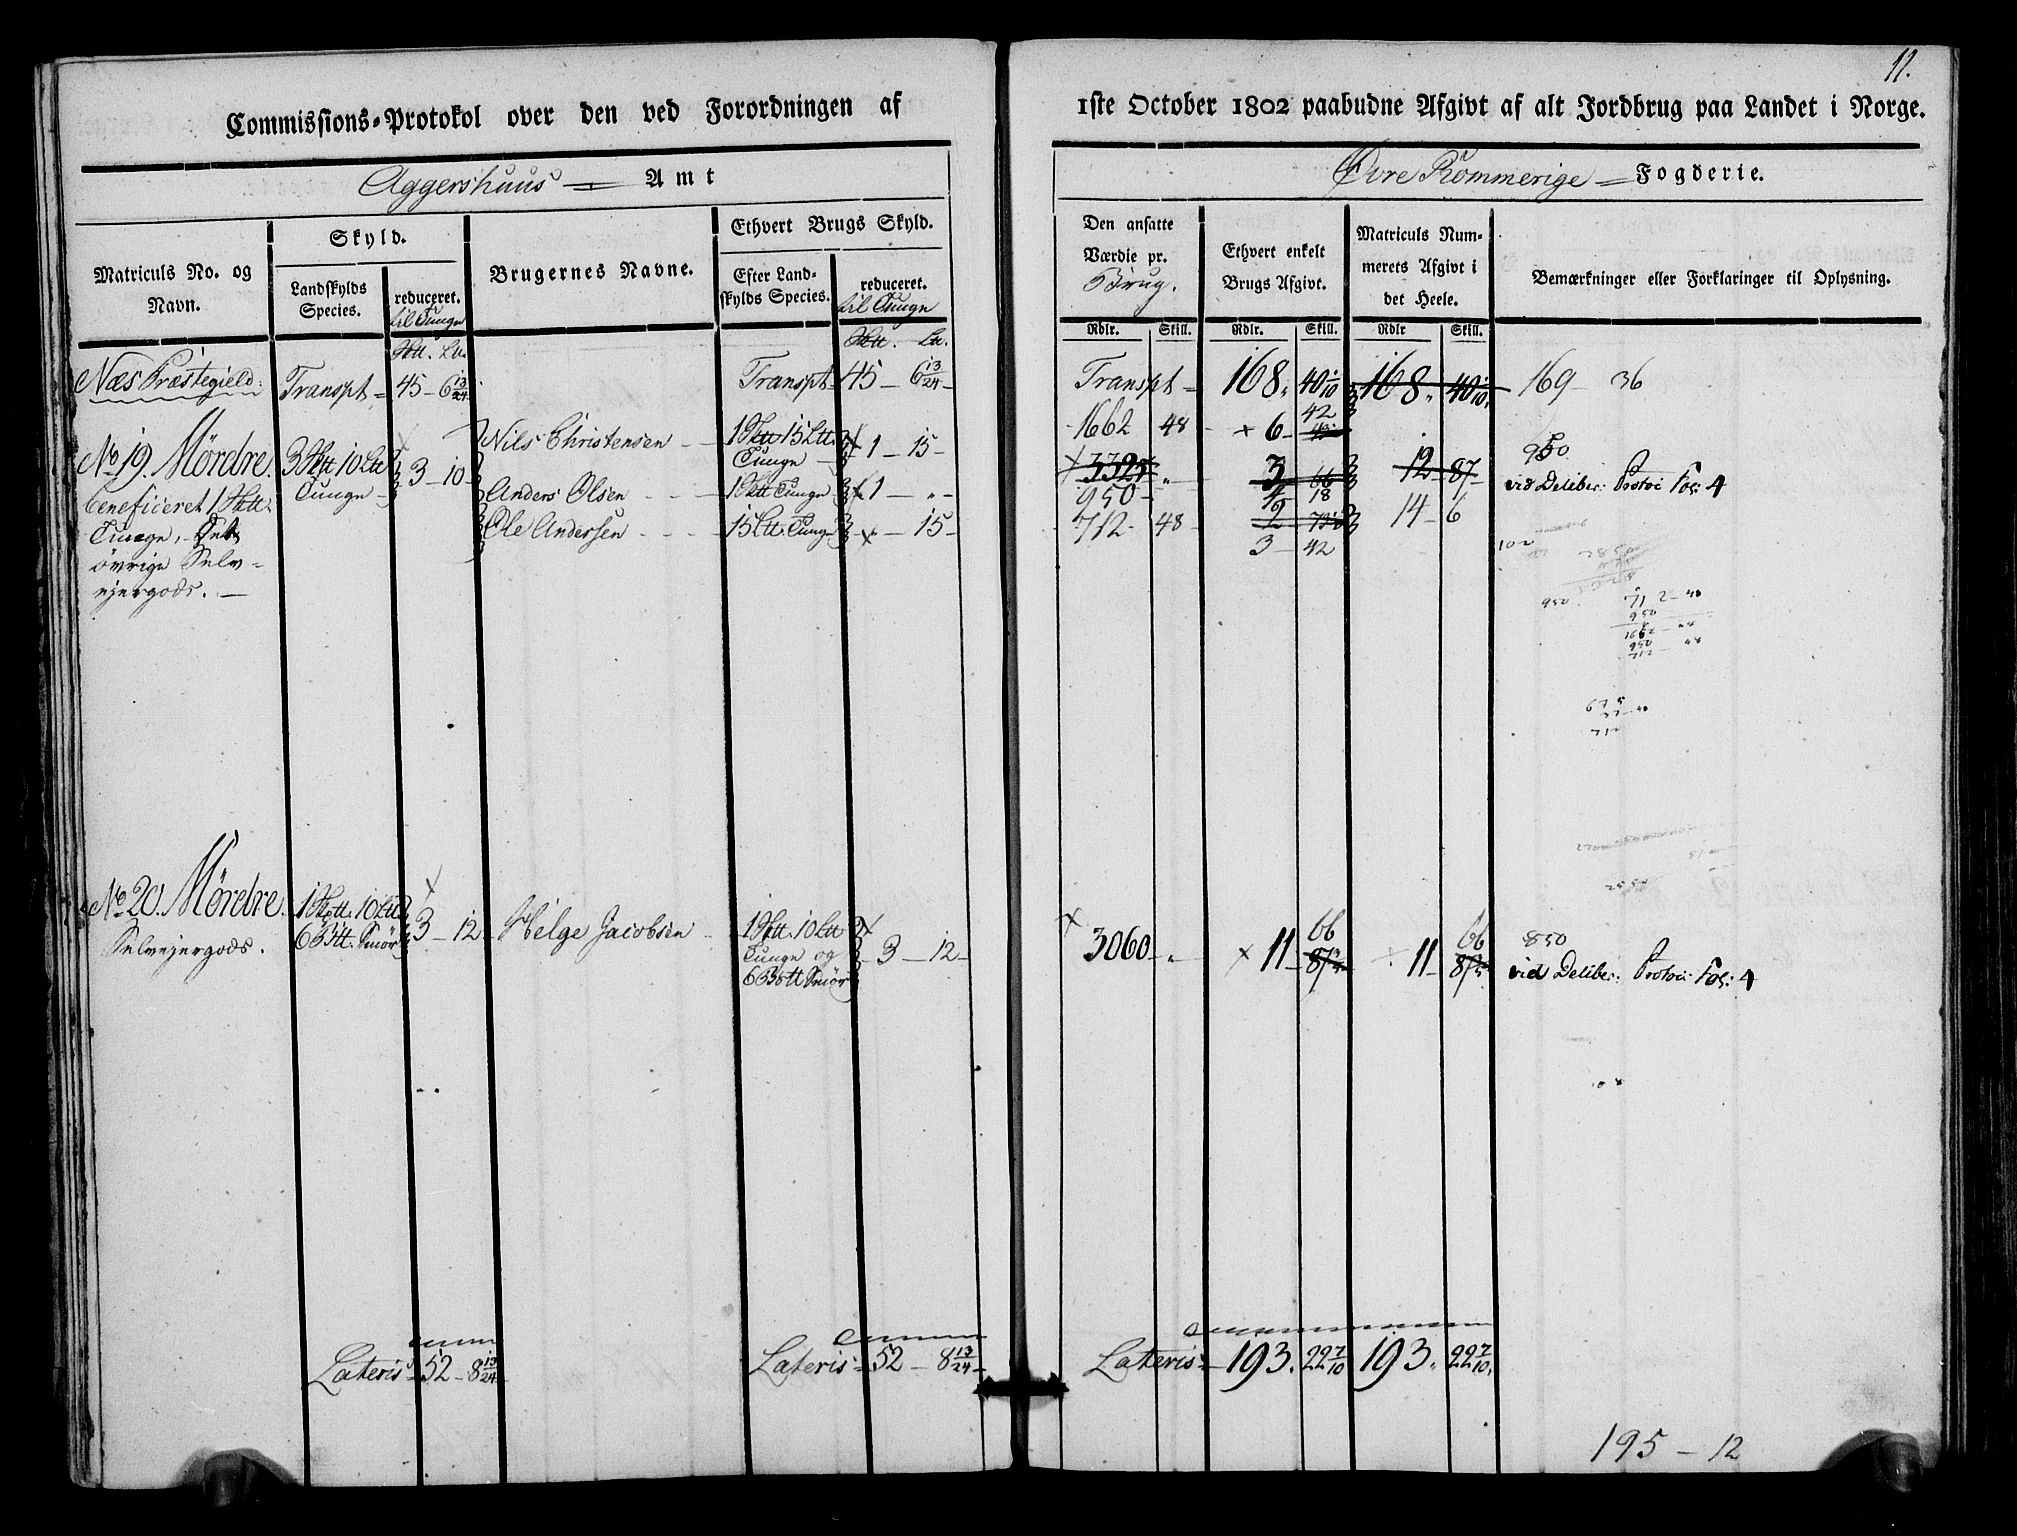 11.
Commissions-Protokol over den ved Forordningen af 1ste October 1802 paabudne Afgivt af alt Jordbrug paa Landet i Norge.
Aggershuus Amt
Øvre Rommerige Fogderie.
Matriculs No. og Navn.
Skyld.
Landskylds Species.
reduceret. til Tunge
Brugernes Navne.
Ethvert Brugs Skyld.
Efter Landskylds Species.
reduceret. til Tunge
Den ansatte Værdie pr. Brug.
Ethvert enkelt Brugs Afgivt.
Matriculs Nummerets Afgivt i det Heele.
Bemærkninger eller Forklaringer til Oplysning.
Rdlr. Skill. Rdlr. Skill. Rdlr Skill.
Næs Præstegield: Transpt 45 - 6 13/24 Transpt 45 - 6 13/24 Transpt 168. 40 1/10 168. 40 1/10 169 - 36
No 19. Mördre. 3 Sktt 10 Ltt Tunge 3 - 10
beneficeret 1 Sktt.
Tunge, Det
övrige Selv-
ejergods.
Nils Christensen 1 Sktt 15 Ltt. Tunge 1 - 15 1662 48 6 42
Anders Olsen 1 Sktt Tunge 1 - " 3325 " 3 66 12 - 87
950 4 18
Ole Andersen 15 Ltt. Tunge " 15 712 48 2 14 - 6
3 - 42
950
vid Deliber: Protoc Fol: 4
102
950
712 - 48
950
1662 - 48
950
712 48
675
37 - 48
712
No 20. Mördre. 1 Sktt. 10 Ltt 6 Btt. Smör 3 - 12 Helge Jacobsen 1 Sktt. 10 Ltt Tunge og 6 Btt Smör 3 - 12 3060 " 11 66 11 66
Selvejergods.
850
vid Deliber: Protoc: Fol: 4
Lateris 52 - 8 13/24 Lateris 52 - 8 13/24 Lateris 193. 22 7/10 193. 22 7/10
195 - 12